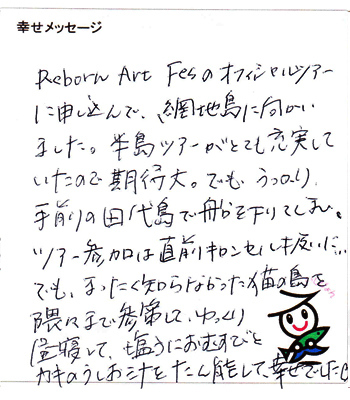 幸せメッセージ
Reborn Art Fesのオフィシャルツアー
に申し込んで、網地島に向かい
ました。半島ツアーがとても充実して
いたので期待大。でも うっかり
手前の田代島で船を下りてしまい、
ツアー参加は直前キャンセル扱いに…
でも、まったく知らなかった猫の島を
隅々まで参策して、ゆっくり
昼寝して、塩うにおむすびと
カキのうしお汁をたん能して、幸せでした